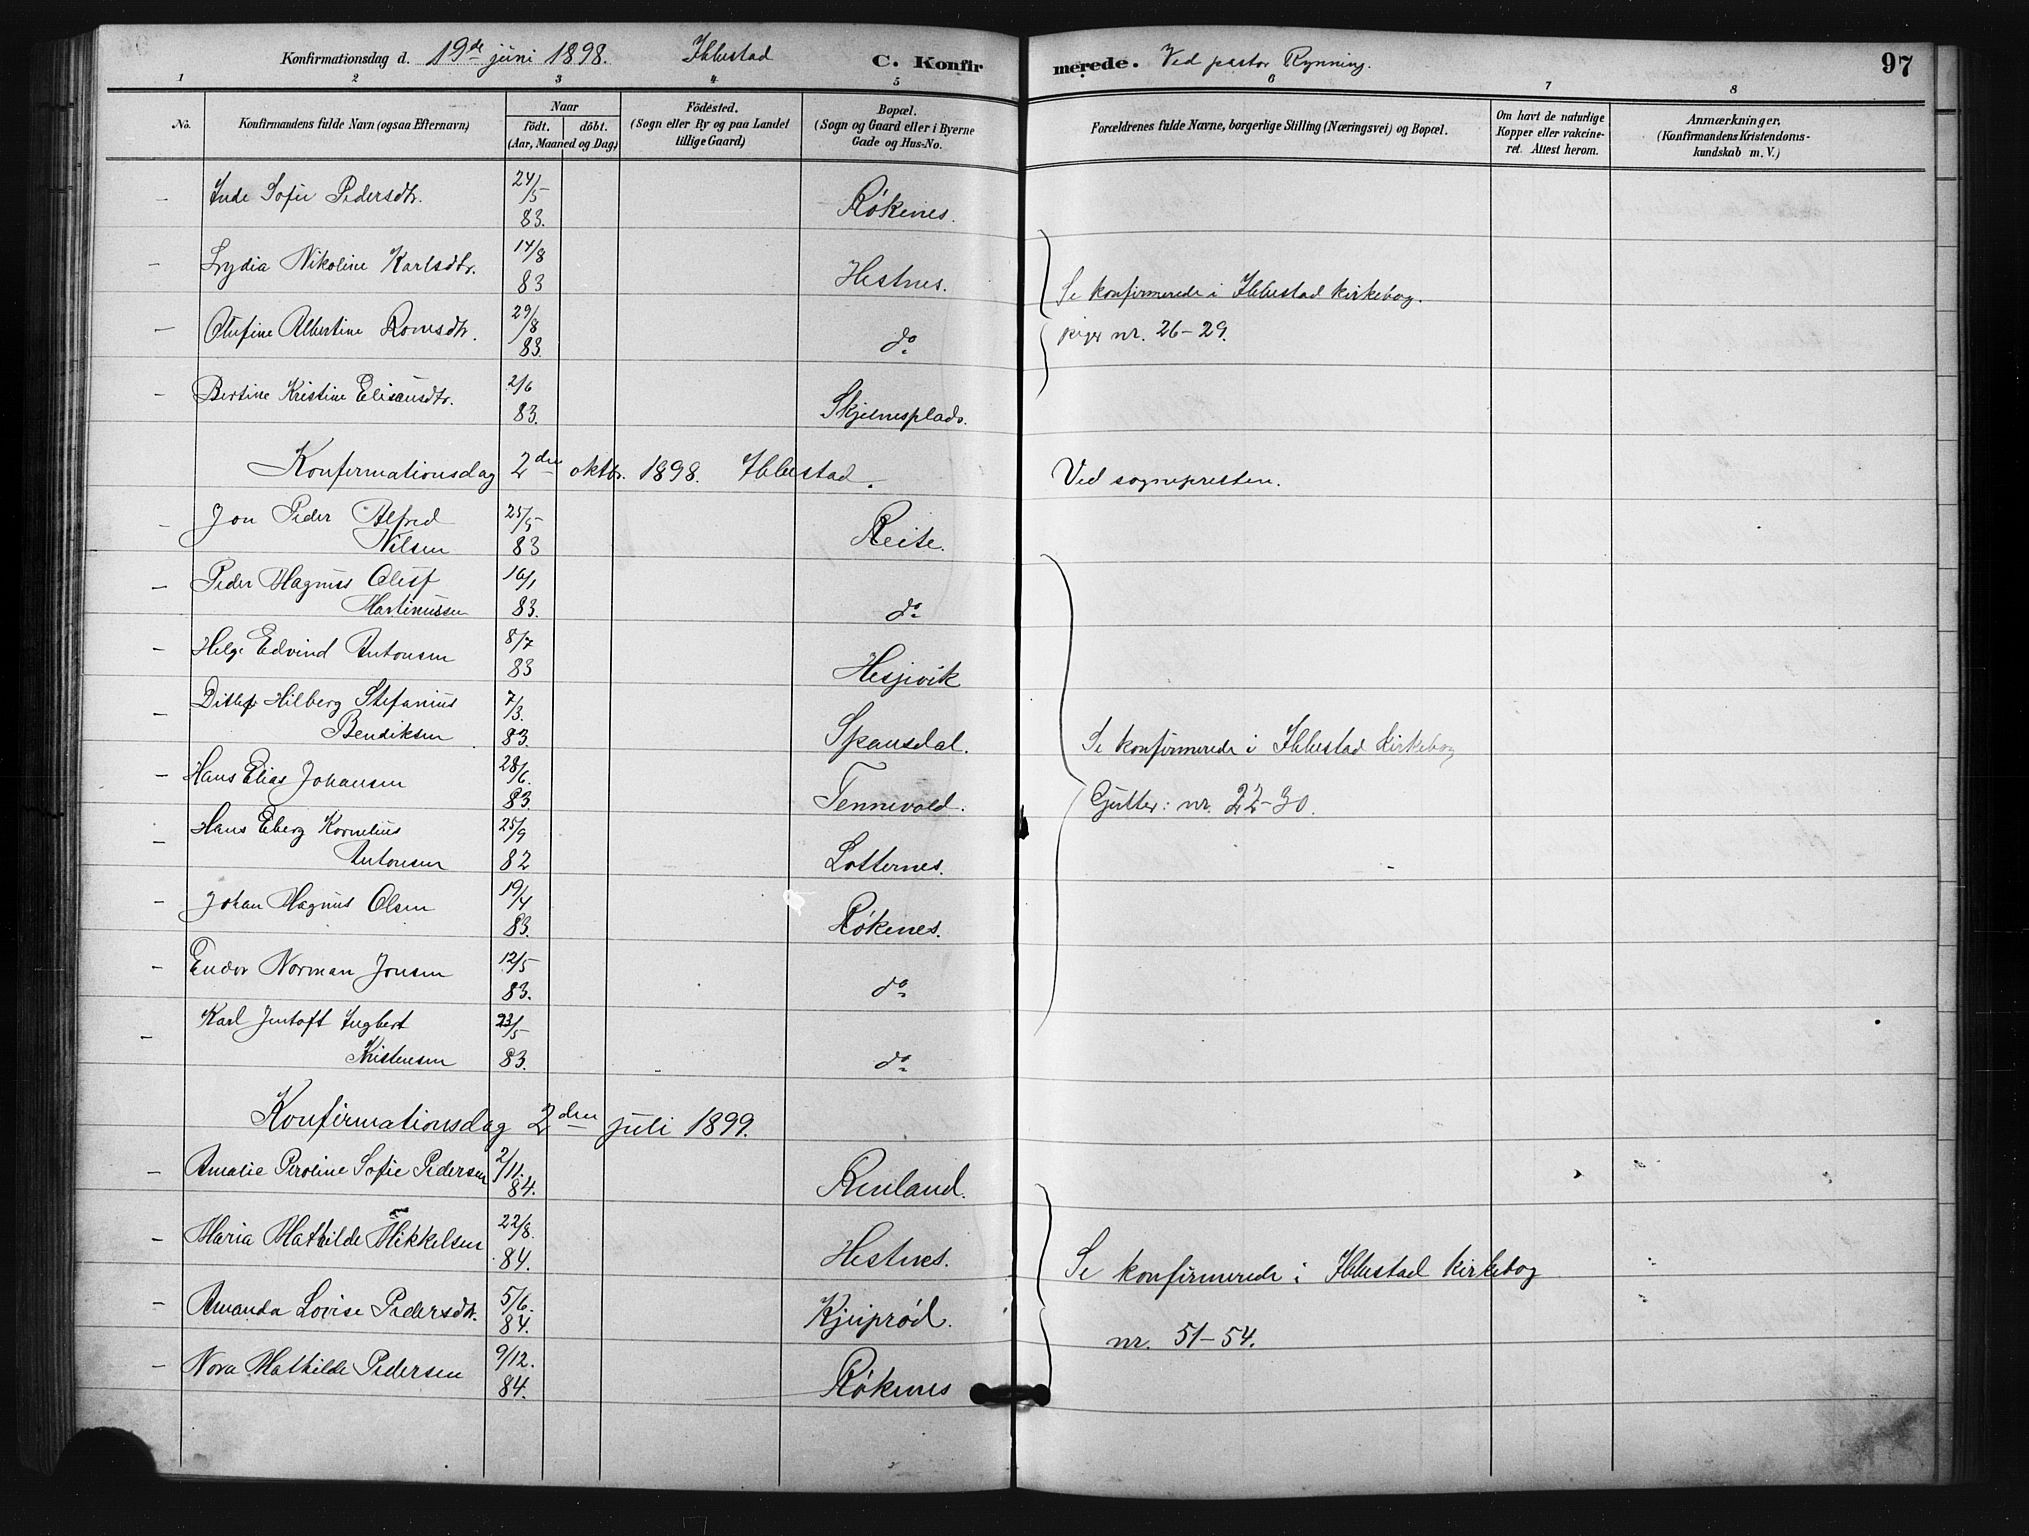 Konfirmationsdag d. 19de juni 1898. Ibbestad C. Konfirmerede. Ved pastor Rynning. 97
1 2 3 4 5 6 7 8
No. Konfirmandens fulde Navn (ogsaa Efternavn) Naar födt. döbt. (Aar, Maaned og Dag) Födested. (Sogn eller By og paa Landet tillige Gaard) Bopæl. (Sogn og Gaard eller i Byerne Gade og Hus-No. Forældrenes fulde Navne, borgerlige Stilling (Næringsvei) og Bopæl. Om havt de naturlige Kopper eller vakcineret. Attest herom. Anmærkninger, (Konfirmandens Kristendomskundskab m. V.)
– Sofie Pedersdtr. 24/5 83. Røkenes.
– Lydia Nikoline Karlsdtr. 14/8 83 Hestnes.
Se konfirmerede i Ibbestad kirkebog.
– Olufine Albertine Romsdtr. 29/8 83. do
piger nr. 26–29.
– Bertine Kristine Elisæusdtr. 2/6 83. Skjelnesplads.
Konfirmationsdag 2den oktbr. 1898. Ibbestad. Ved sognepresten.
– Jon Peder Alfred Nilsen 25/5 83 Reite.
– Peder Magnus Oluf Martinussen 16/1 83. do
– Helge Edvind Antonsen 8/7 83 Hesjevik
– Ditlef Hilberg Stefanius Bendiksen 7/3. 83. Spansdal.
Se konfirmerede i Ibbestad kirkebog
– Hans Elias Johansen 28/6. 83. Tennevold.
Gutter: nr. 22–30.
– Hans Eberg Kornelius Antonsen 25/9 82 Lotternes.
– Johan Magnus Olsen 19/4 83. Røkenes.
– Endor Norman Jensen 12/5 83. do
– Karl Jentoft Ingbert Kristensen 23/5 83. do
Konfirmationsdag 2den juli 1899.
– Amalie Peroline Sofie Pedersen 2/11. 84. Renland.
– Maria Mathilde Mikkelsen 22/8. 84. Hestnes.
Se konfirmerede i Ibbestad kirkebog
– Amanda Lovise Pedersdtr. 5/6. 84. Kjeiprød.
nr. 51–54.
– Nora Mathilde Pedersen 9/12. 84. Røkenes